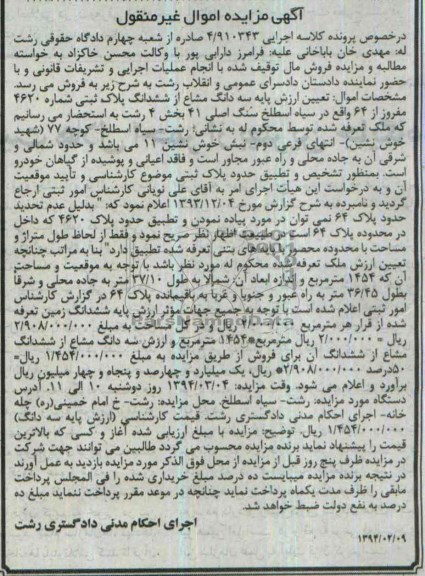 آگهی مزایده اموال غیرمنقول
درخصوص پرونده کلاسه اجرایی ۴/۹۱۰۳۴۳ صادره از شعبه چهارم دادگاه حقوقی رشت
له: مهدی خان باباخانی علیه: فرامرز دارابی پور با وکالت محسن خاکزاد به خواسته
مطالبه و مزایده فروش مال توقیف شده با انجام عملیات اجرایی و تشریفات قانونی و با
حضور نماینده دادستان دادسرای عمومی و انقلاب رشت به شرح زیر به فروش می رسد.
مشخصات اموال: تعیین ارزش پایه سه دانگ مشاع از ششدانگ پلاک ثبتی شماره ۴۶۲۰
مفروز از ۶۴ واقع در سیاه اسطلخ سنگ اصلی ۴۱ بخش ۴ رشت به استحضار می رسانیم
که ملک تعرفه شده توسط محکوم له به نشانی: رشت- سیاه اسطلخ- کوچه ۷۷ (شهید
خوش نشین)- انتهای فرعی دوم- نبش خوش نشین ۱۱ می باشد و حدود شمالی و
شرقی آن به جاده محلی و راه عبور مجاور است و فاقد اعیانی و پوشیده از گیاهان خودرو
است. بمنظور تشخیص و تطبیق حدود پلاک ثبتی موضوع کارشناسی و تأیید موقعیت
آن و به درخواست این هیأت اجرای امر به آقای علی نویانی کارشناس امور ثبتی ارجاع
گردید و نامبرده به شرح گزارش مورخ ۱۳۹۳/۱۲/۰۴ اعلام نمود که: "بدلیل عدم تحدید
حدود پلاک ۶۴ نمی توان در مورد پیاده نمودن و تطبیق حدود پلاک ۴۶۲۰ که داخل
در محدوده پلاک ۶۴ است در طبیعت اظهار نظر صریح نمود و فقط از لحاظ طول متراژ و
مساحت با محدوده محصور با پایه های بتنی تعرفه شده تطبیق دارد" بنا به مراتب چنانچه
تعیین ارزش ملک تعرفه شده محکوم له مورد نظر باشد با توجه به موقعیت و مساحت
آن که ۱۴۵۴ مترمربع و اندازه ابعاد آن: شمالا به طول ۳۷/۱۰ متر به جاده محلی و شرقا
بطول ۳۶/۴۵ متر به راه عبور و جنوبا و غربا به باقیمانده پلاک ۶۴ در گزارش کارشناس
امور ثبتی اعلام شده است با توجه به جمیع جهات مؤثر ارزش پایه ششدانگ زمین تعرفه
شده از قرار هر مترمربع ریال و کل به مبلغ ۲/۹۰۸/۰۰۰/۰۰۰
ریال = ۲/۰۰۰/۰۰۰ ریال مترمربع*۱۴۵۴ مترمربع و ارزش سه دانگ مشاع از ششدانگ
مشاع از ششدانگ آن برای فروش از طریق مزایده به مبلغ ۱/۴۵۴/۰۰۰/۰۰۰ ریال=
۵۰درصد *۲/۹۰۸/۰۰۰/۰۰۰ ریال، یک میلیارد و چهارصد و پنجاه و چهار میلیون ریال
برآورد و اعلام می شود. وقت مزایده: ۱۳۹۴/۰۳/۰۴ روز دوشنبه ۱۰ الی ۱۱، آدرس
دستگاه مورد مزایده: رشت- سیاه اسطلخ، محل مزایده: رشت- خ امام خمینی(ره) چله
خانه- اجرای احکام مدنی دادگستری رشت. قیمت کارشناسی (ارزش پایه سه دانگ)
۱/۴۵۴/۰۰۰/۰۰۰ ریال. توضیح: مزایده با مبلغ ارزیابی شده آغاز و کسی که بالاترین
قیمت را پیشنهاد نماید برنده مزایده محسوب می گردد طالبین می توانند جهت شرکت
در مزایده ظرف پنج روز قبل از مزایده از محل فوق الذکر مورد مزایده بازدید به عمل آورند
در نتیجه برنده مزایده میبایست ده درصد مبلغ خریداری شده را فی المجلس پرداخت
مابقی را ظرف مدت یکماه پرداخت نماید چنانچه در موعد مقرر پرداخت ننماید مبلغ ده
درصد به نفع دولت ضبط خواهد شد.
اجرای احکام مدنی دادگستری رشت
۱۳۹۴/۰۲/۰۹